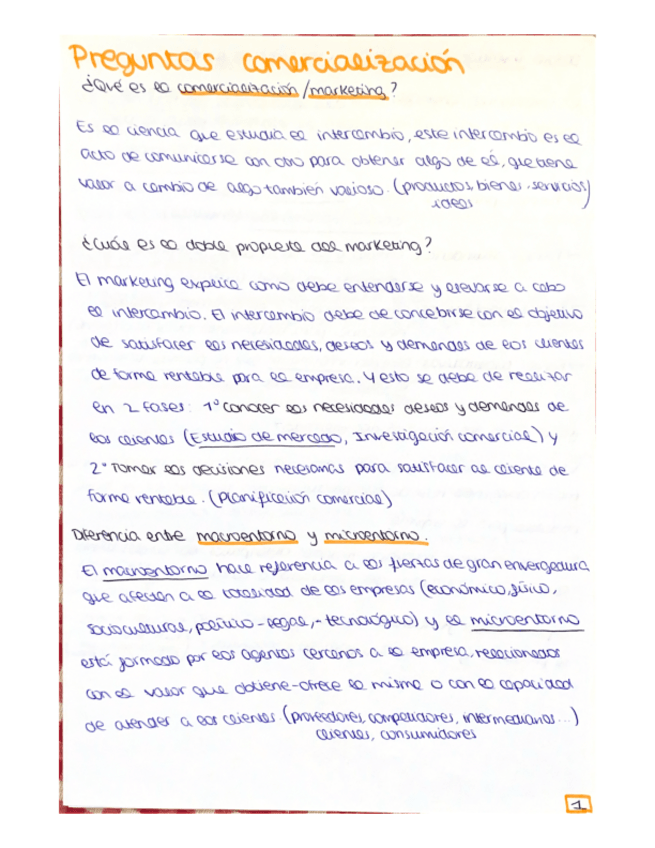 Preguntas comercialización
¿Qué es la comercialización/marketing?
Es la ciencia que estudia el intercambio, este intercambio es el
acto de comunicarse con otro para obtener algo de él, que tiene
valor a cambio de algo también valioso. (productos, bienes, servicios)
ideas
¿Cuál es la doble propuesta del marketing?
El marketing explica como debe entenderse y llevarse a cabo
el intercambio. El intercambio debe de concebirse con el objetivo
de satisfacer las necesidades, deseos y demandas de los clientes
de forma rentable para la empresa. Y esto se debe de realizar
en 2 fases: 1º conocer las necesidades deseos y demandas de
los clientes (Estudio de mercado, Investigación comercial) y
2º Tomar las decisiones necesarias para satisfacer al cliente de
forma rentable. (Planificación comercial)
Diferencia entre macroentorno y microentorno.
El macroentorno hace referencia a las fuerzas de gran envergadura
que afectan a la totalidad de las empresas (económico, físico,
sociocultural, político-legal, -tecnológico) y el microentorno
está formado por los agentes cercanos a la empresa, relacionados
con el valor que obtiene-ofrece la misma o con la capacidad
de atender a los clientes (proveedores, competidores, intermediarios...)
clientes, consumidores
1